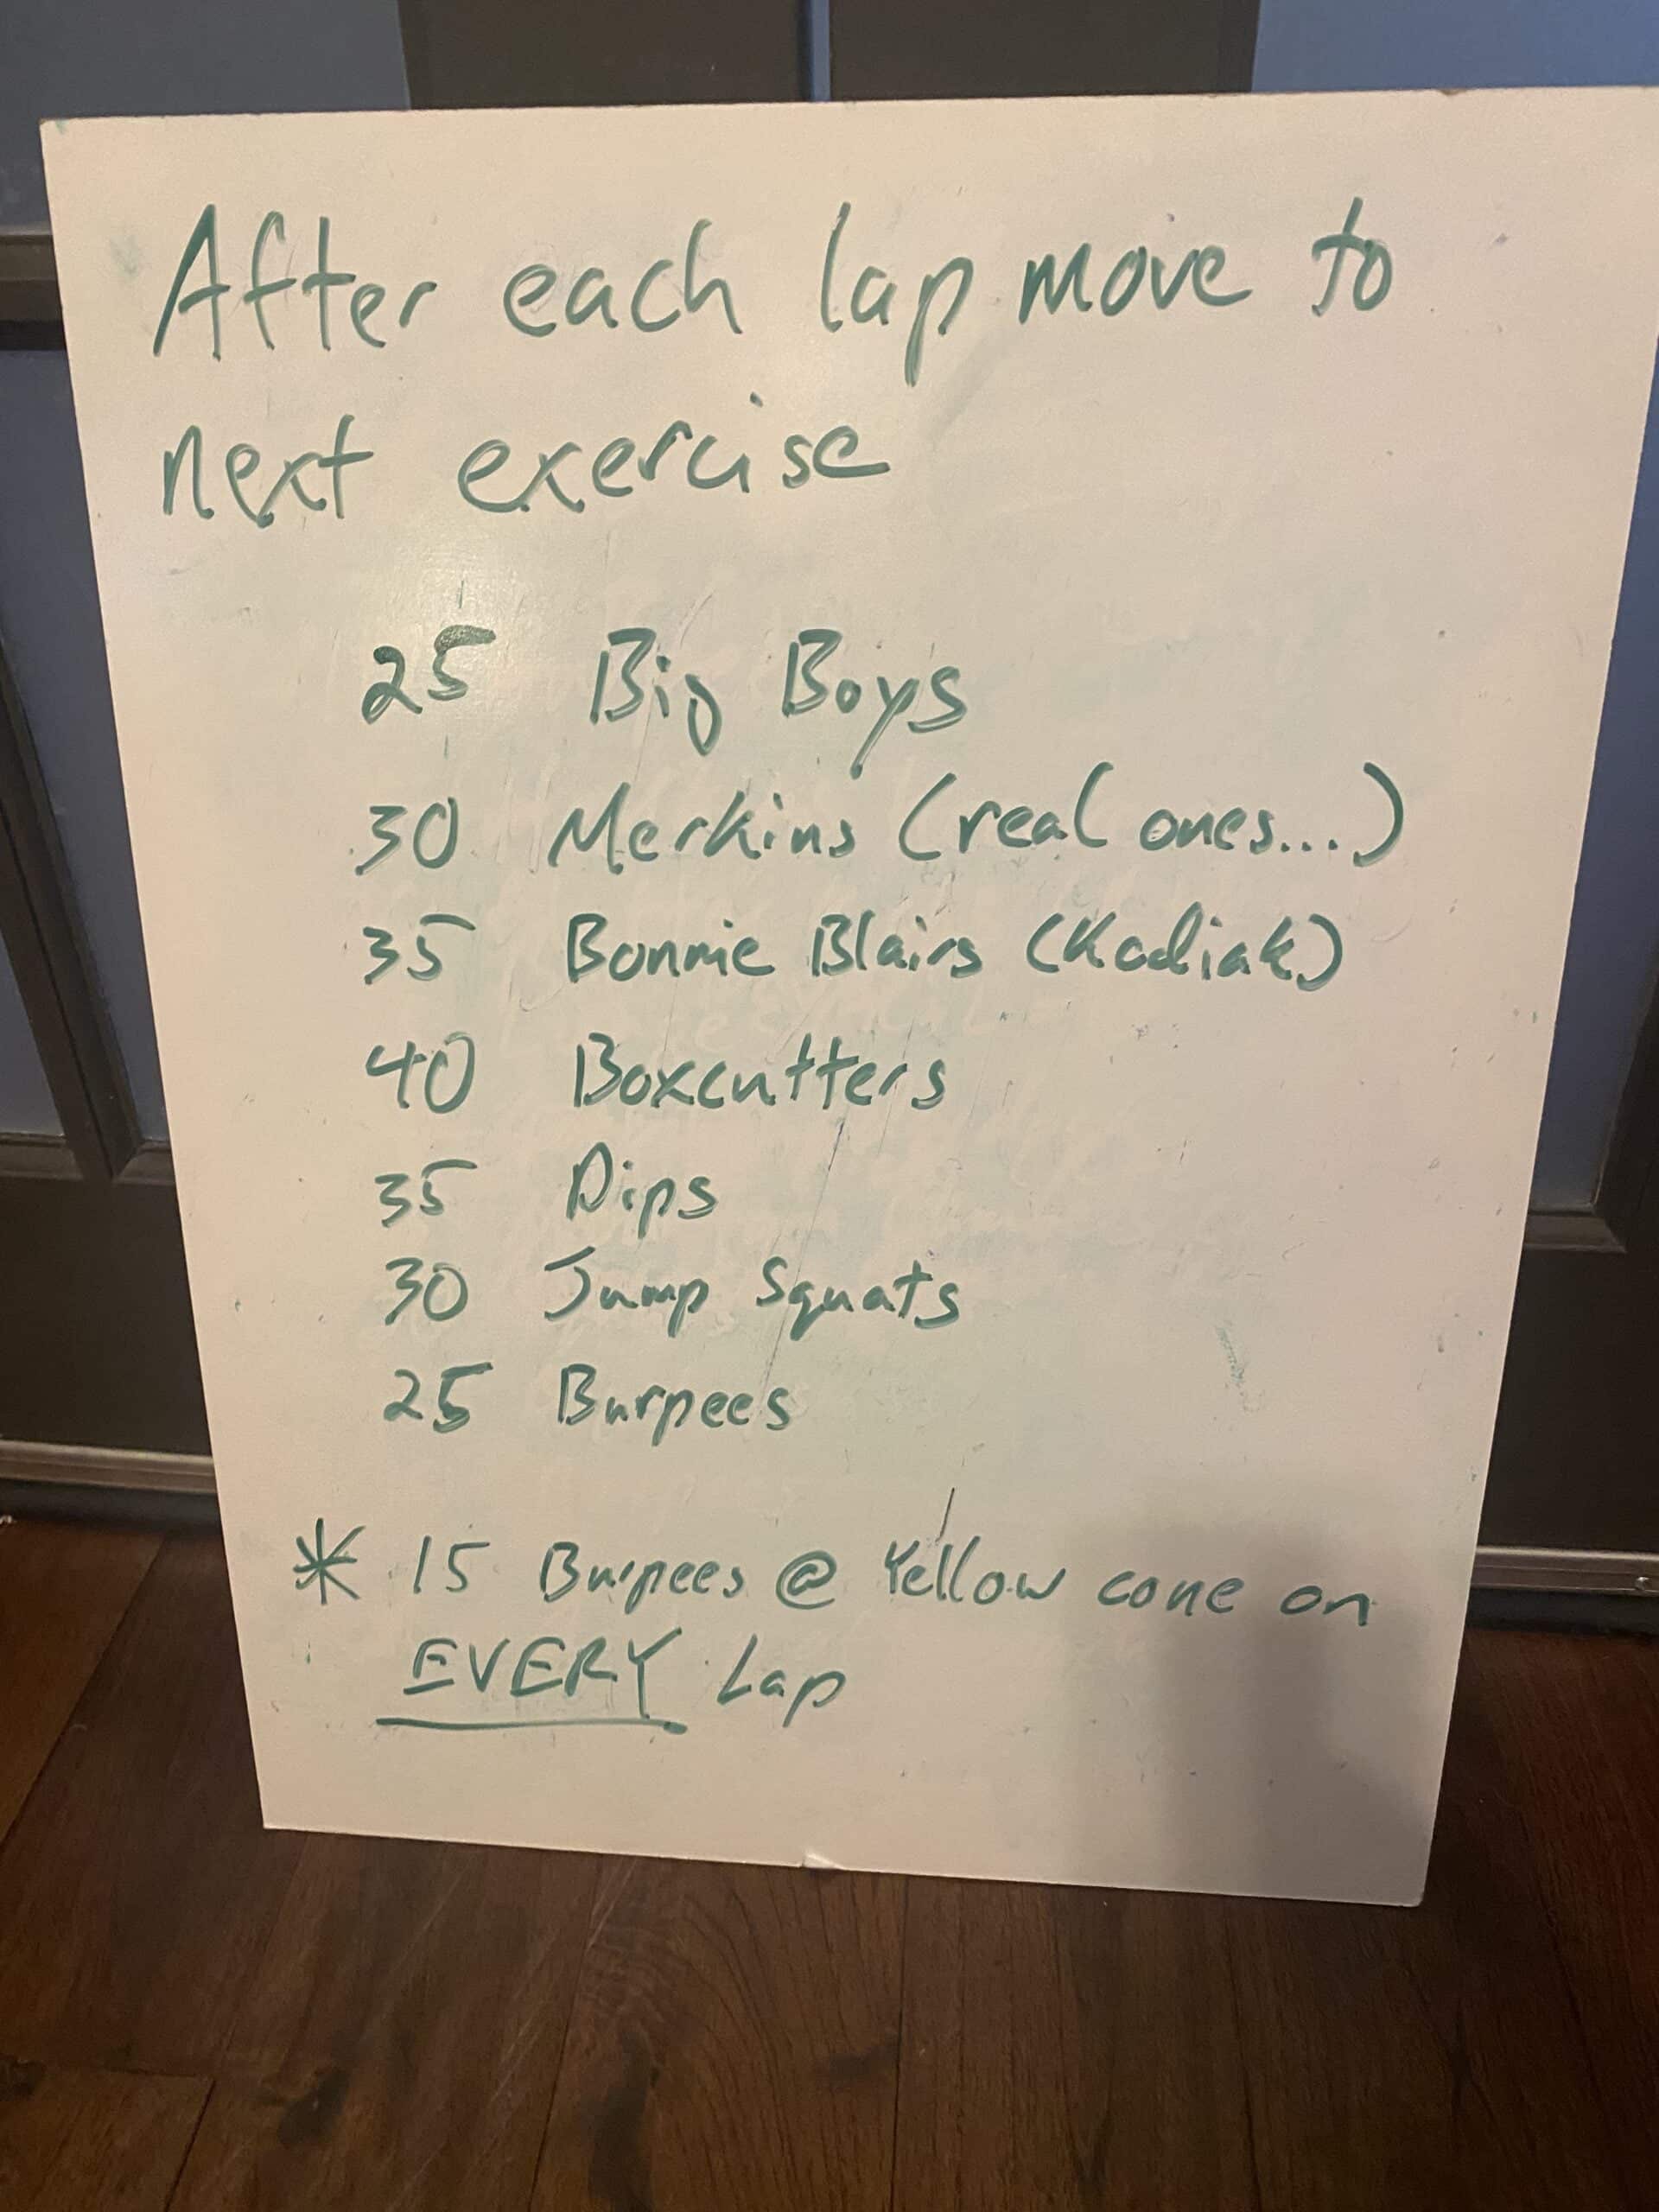 After each lap move to
next exercise
25 Big Boys
30 Merkins (real ones...)
35 Bonnie Blairs (Kodiak)
40 Boxcutters
35 Dips
30 Jump Squats
25 Burpees
* 15 Burpees @ Yellow cone on
EVERY Lap